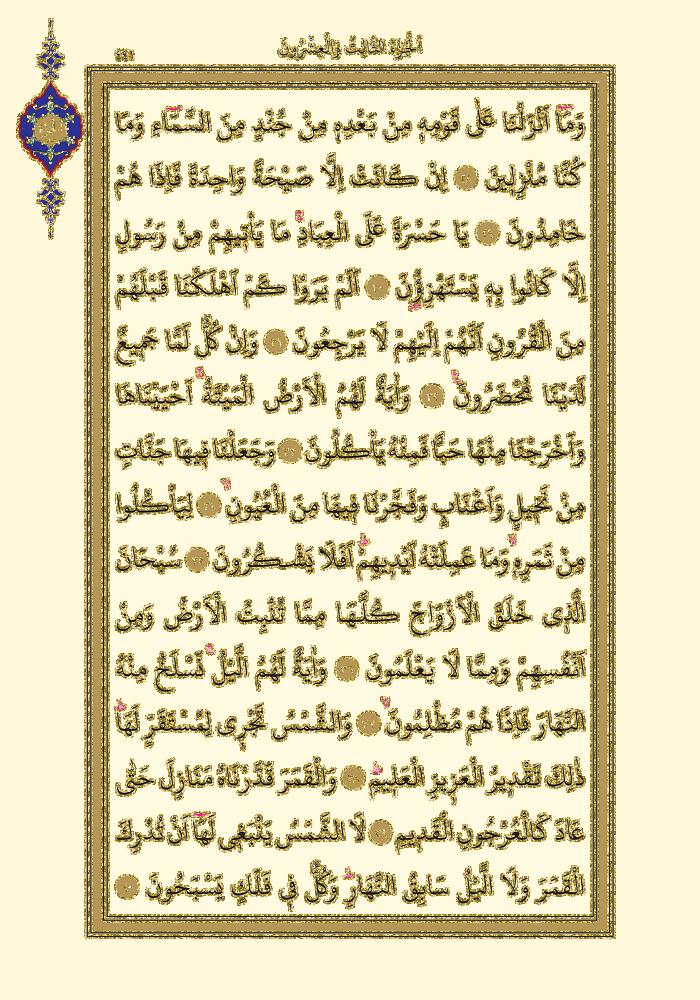 اَلْجُزْءُ الثَّالِثُ وَالْعِشْرُونَ
وَمَٓا اَنْزَلْنَا عَلٰى قَوْمِهٖ مِنْ بَعْدِهٖ مِنْ جُنْدٍ مِنَ السَّمَٓاءِ وَمَا
كُنَّا مُنْزِلٖينَ اِنْ كَانَتْ اِلَّا صَيْحَةً وَاحِدَةً فَاِذَا هُمْ
خَامِدُونَ يَا حَسْرَةً عَلَى الْعِبَادِۚ مَا يَأْتٖيهِمْ مِنْ رَسُولٍ
اِلَّا كَانُوا بِهٖ يَسْتَهْزِؤُ۫نَ اَلَمْ يَرَوْا كَمْ اَهْلَكْنَا قَبْلَهُمْ
مِنَ الْقُرُونِ اَنَّهُمْ اِلَيْهِمْ لَا يَرْجِعُونَ وَاِنْ كُلٌّ لَمَّا جَمٖيعٌ
لَدَيْنَا مُحْضَرُونَ۟ وَاٰيَةٌ لَهُمُ الْاَرْضُ الْمَيْتَةُۚ اَحْيَيْنَاهَا
وَاَخْرَجْنَا مِنْهَا حَبًّا فَمِنْهُ يَأْكُلُونَ وَجَعَلْنَا فٖيهَا جَنَّاتٍ
مِنْ نَخٖيلٍ وَاَعْنَابٍ وَفَجَّرْنَا فٖيهَا مِنَ الْعُيُونِۙ لِيَأْكُلُوا
مِنْ ثَمَرِهٖۙ وَمَا عَمِلَتْهُ اَيْدٖيهِمْۜ اَفَلَا يَشْكُرُونَ سُبْحَانَ
الَّذٖى خَلَقَ الْاَزْوَاجَ كُلَّهَا مِمَّا تُنْبِتُ الْاَرْضُ وَمِنْ
اَنْفُسِهِمْ وَمِمَّا لَا يَعْلَمُونَ وَاٰيَةٌ لَهُمُ الَّيْلُۚ نَسْلَخُ مِنْهُ
النَّهَارَ فَاِذَا هُمْ مُظْلِمُونَۙ وَالشَّمْسُ تَجْرٖى لِمُسْتَقَرٍّ لَهَاۜ
ذٰلِكَ تَقْدٖيرُ الْعَزٖيزِ الْعَلٖيمِۜ وَالْقَمَرَ قَدَّرْنَاهُ مَنَازِلَ حَتّٰى
عَادَ كَالْعُرْجُونِ الْقَدٖيمِ لَا الشَّمْسُ يَنْبَغٖى لَهَٓا اَنْ تُدْرِكَ
الْقَمَرَ وَلَا الَّيْلُ سَابِقُ النَّهَارِۜ وَكُلٌّ فٖى فَلَكٍ يَسْبَحُونَ